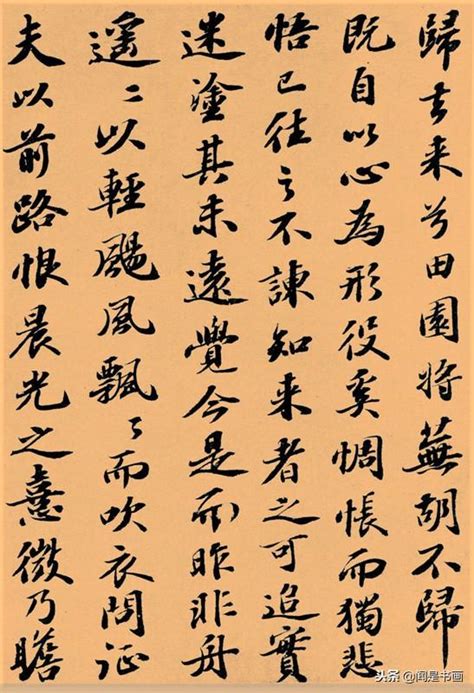 歸去来兮田園将蕪胡不歸
既自以心為形役奚惆悵而獨悲
悟已往之不諫知来者之可追實
迷塗其未遠覺今是而昨非舟
遥〻以輕颺風飄〻而吹衣問征
夫以前路恨晨光之憙微乃瞻
头条 @闻是书画